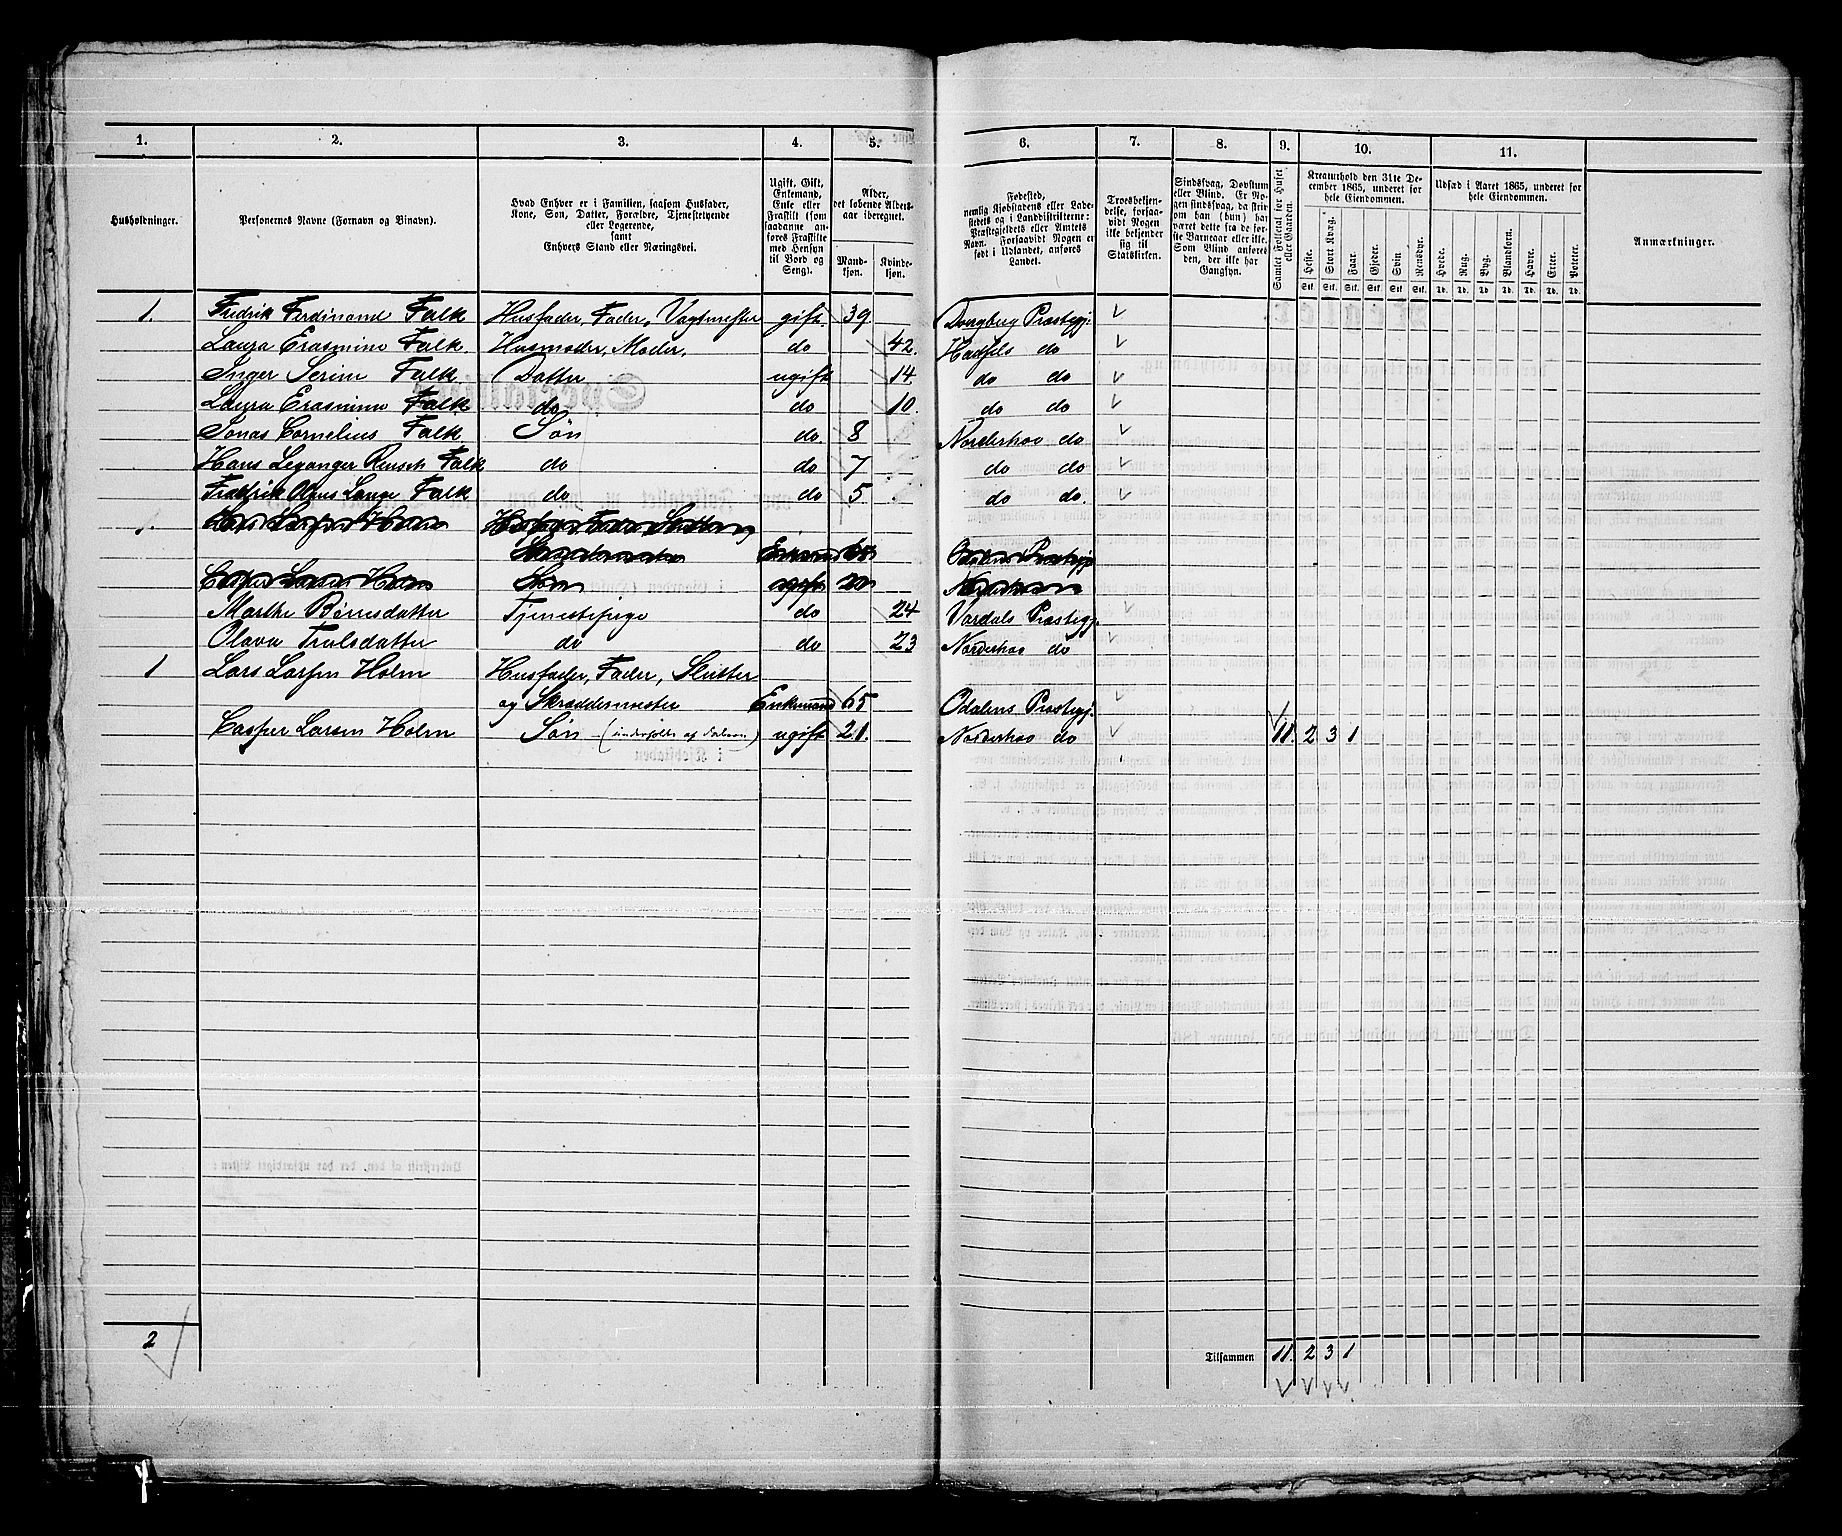 1. 2. 3. 4. 5. 6. 7. 8. 9. 10. 11.
Husholdninger.
Personernes Navne (Fornavn og Binavn).
Hvad Enhver er i Familien, saasom Husfader, Kone, Søn, Datter, Forældre, Tjenestetyende eller Logerende, samt Enhvers Stand eller Næringsvei.
Ugift, Gift, Enkemand, Enke eller Fraskilt (som saadanne anføres Fraskilte med Hensyn til Bord og Seng).
Alder, det løbende Aldersaar iberegnet.
Mandkjøn. Kvindekjøn.
Fødested, nemlig Kjøbstadens eller Ladestedets og i Landdistrikterne: Præstegjeldets eller Amtets Navn. Forsaavidt Nogen er født i Udlandet, anføres Landet.
Troesbekjendelse, forsaavidt Nogen ikke bekjender sig til Statskirken.
Sindssvag, Døvstum eller Blind. Er Nogen sindssvag, da skrives om han (hun) har været dette fra de første Barneaar eller ikke. Som Blind anføres den, der ikke har Gangsyn.
Samlet Folketal for Huset eller Gaarden.
Kreaturhold den 31te December 1865, underet for hele Eiendommen.
Heste. Stort Kvæg. Faar. Gjeder. Svin. Rensdyr.
Stk. Stk. Stk. Stk. Stk. Stk.
Udsæd i Aaret 1865, underet for hele Eiendommen.
Hvede. Rug. Byg. Blandkorn. Havre. Erter. Poteter.
Td. Td. Td. Td. Td. Td. Td.
Anmærkninger.
1. Fredrik Ferdinand Falk Husfader, Fader, Vagtmester gift. 39 Præstegj:
Laura Erasmine Falk. Husmoder, Moder, do 42. Hadsels do
Inger Serine Falk Datter ugift 14. do do
Laura Erasmine Falk do do 10. do do
Jonas Cornelius Falk Søn do. 8 Norderhoo do
Hans Leganger Falk do do 7 do do
Fredrik Lange Falk do do 5 do do.
Marthe Børresdatter Tjenestepige do 24 Vardals Præstegj.
Olava Trulsdatter do do 23 Norderhoo do
1 Lars Larsen Holm Husfader, Fader, Slutter
og Skræddermester Enkemand 65 Odalens Præstegj.
Casper Larsen Holm Søn (underholdes af Faderen) ugift 21. Norderhoo do 11. 2 3 1
2
Tilsammen 11. 2 3 1